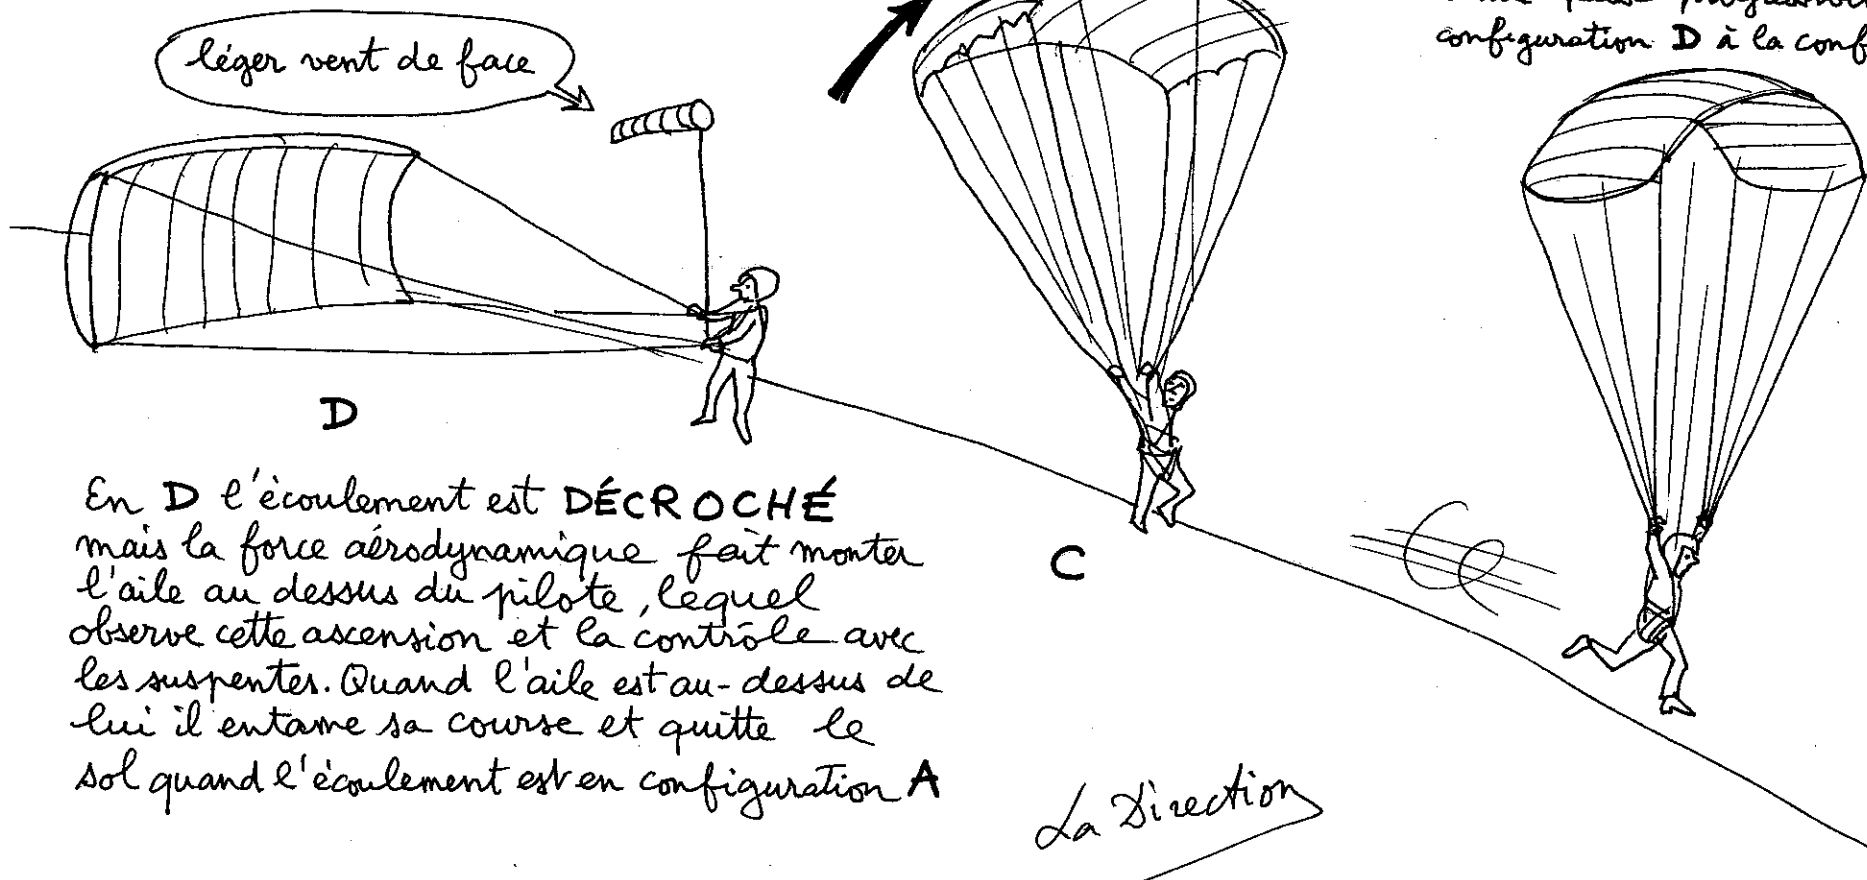 léger vent de face
configuration D à la conf
D
C
En D l'écoulement est DÉCROCHÉ
mais la force aérodynamique fait monter
l'aile au dessus du pilote, lequel
observe cette ascension et la contrôle avec
les suspentes. Quand l'aile est au-dessus de
lui il entame sa course et quitte le
sol quand l'écoulement est en configuration A
La Direction